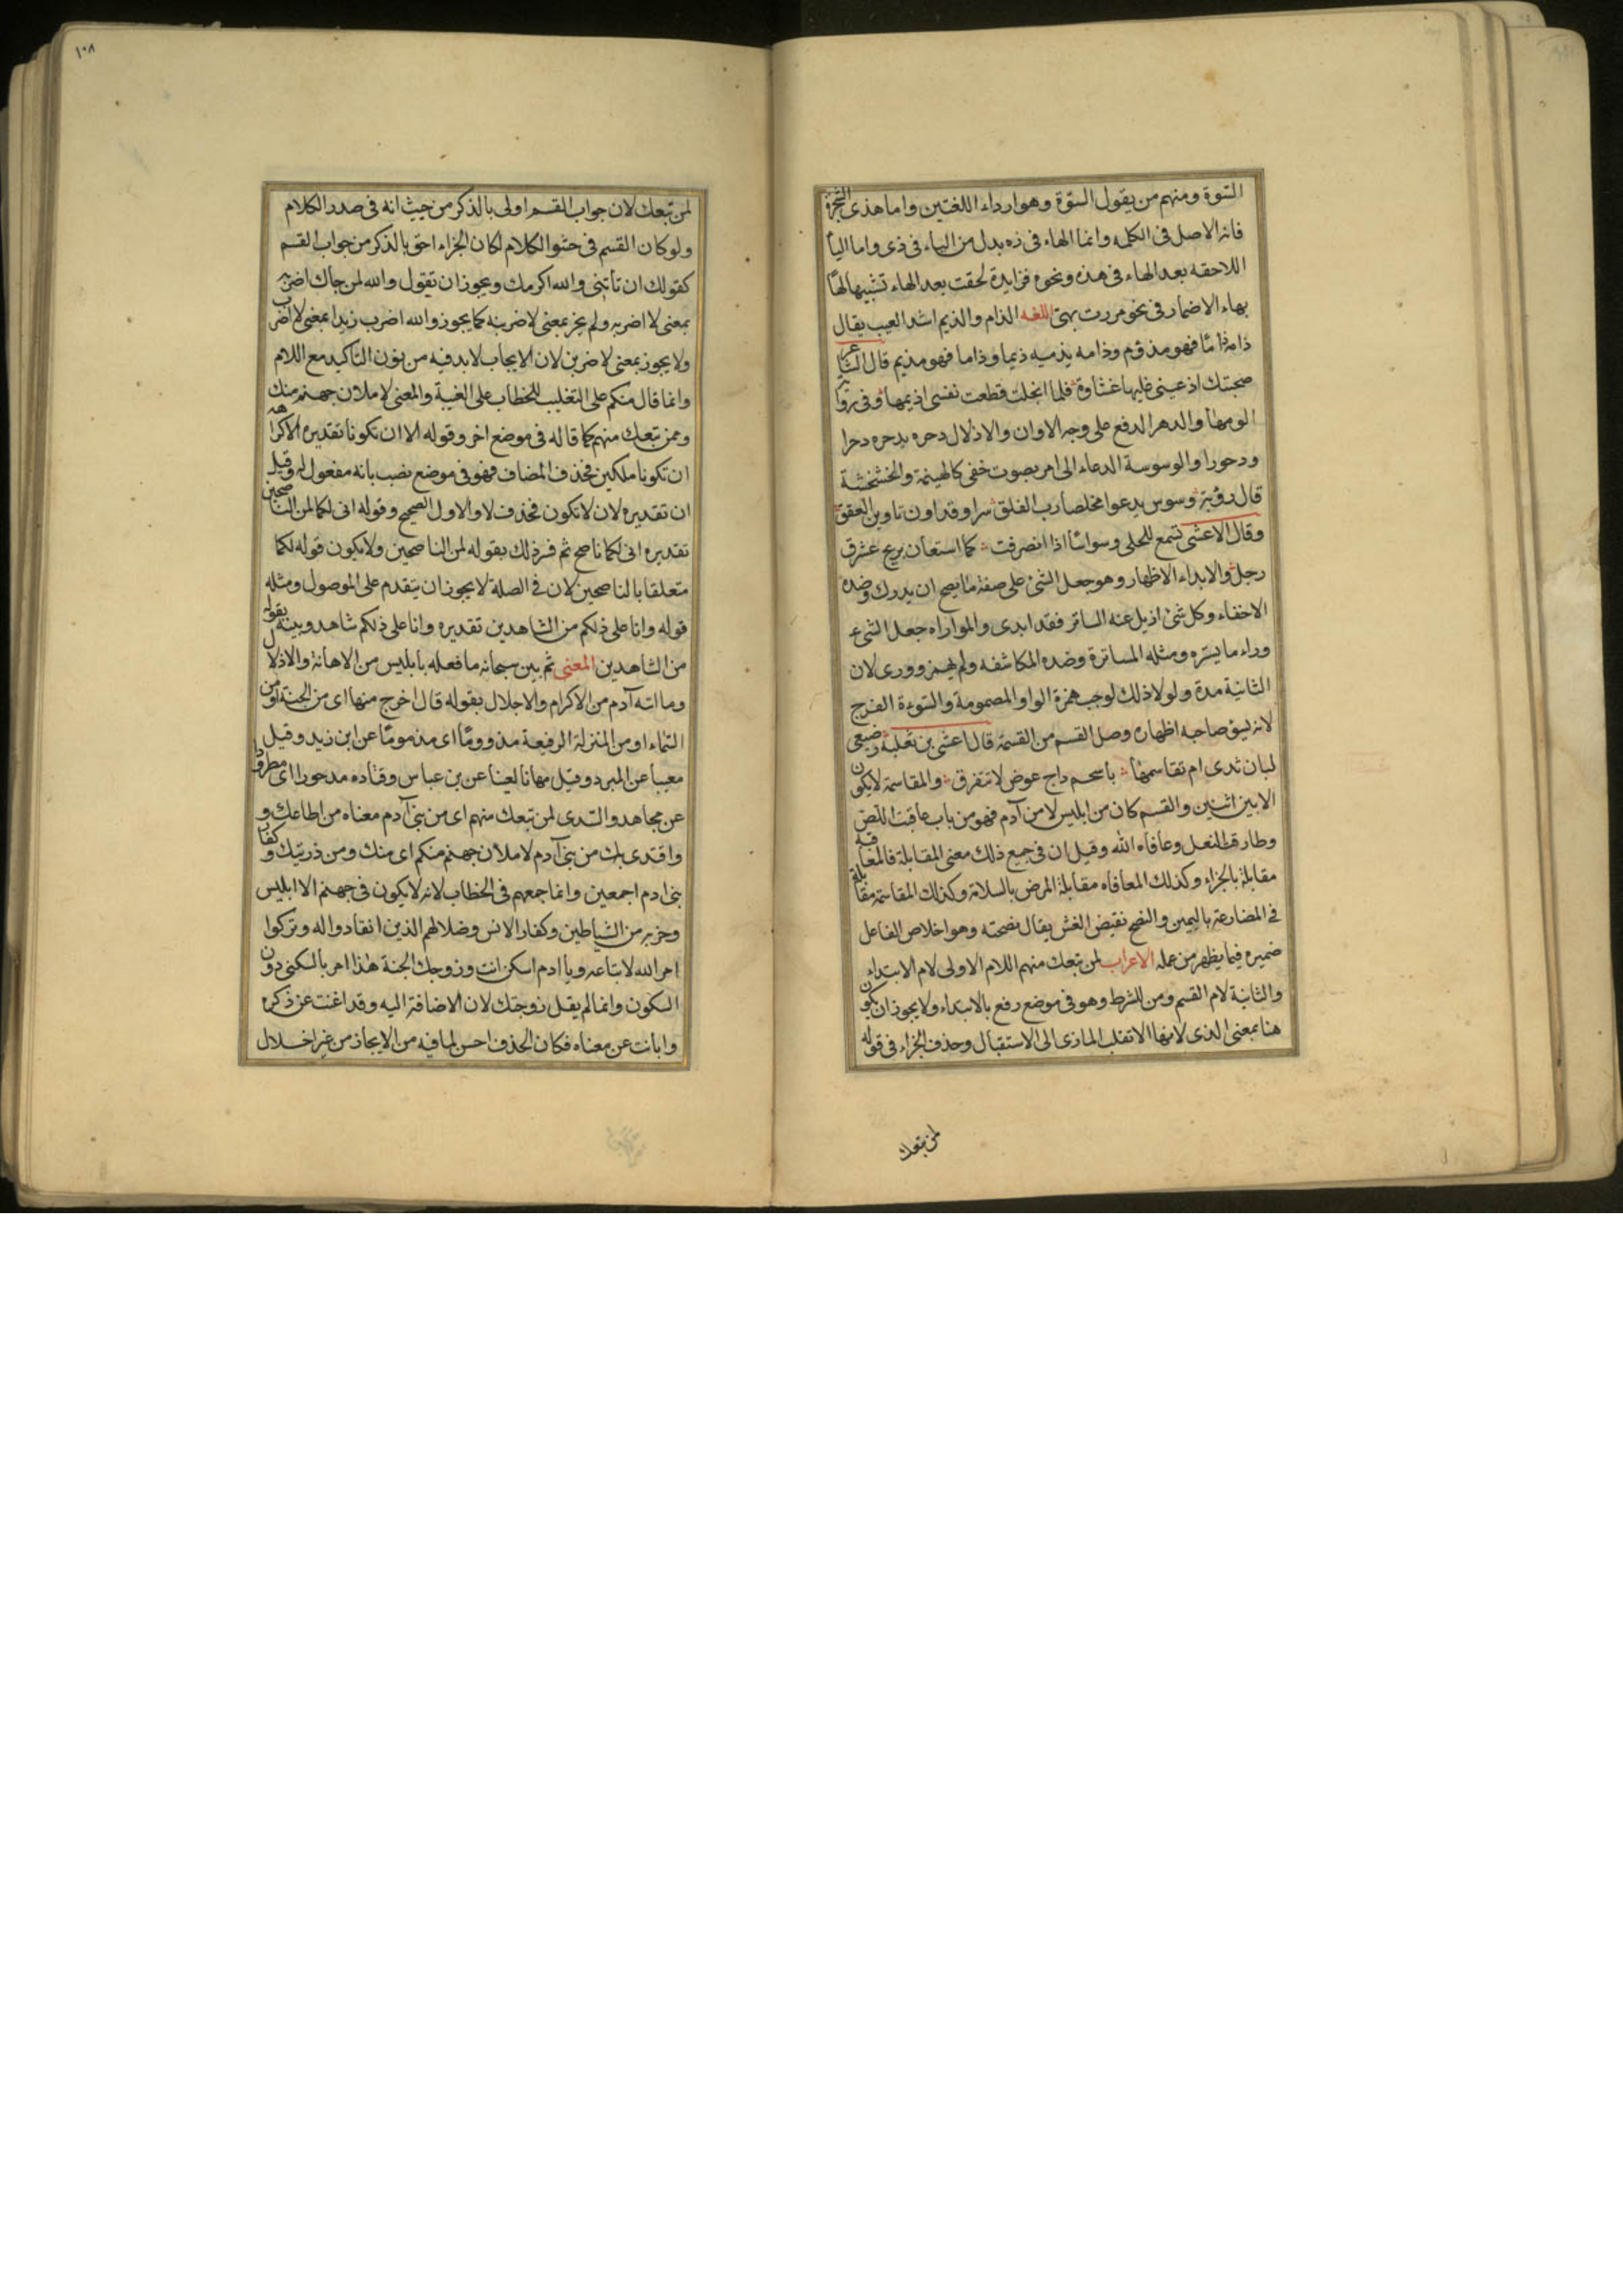 السّوة ومنهم من يقول السوّة وهو ارداء اللغتين واما هذى الشجرة
فانه الاصل فى الكلمه وانما الهاء فى ذه بدل من الياء فى ذى واما اليا
اللاحقه بعد الهاء فى هذه ونحوه فزايدة لحقت بعد الهاء تشبيها لها
بهاء الاضمار فى نحو مررت بهى اللغه الذام والذيم اشد العيب يقال
ذامه ذامًا فهو مذؤم وذامه يذيمه ذيما وذاما فهو مذيم قال الشاعر
صحبتك اذ عينى عليها غشاوة فلما انجلت قطعت نفسى اذيمها وفى رواية
الومها والدهر الدفع على وجه الاوان والاذلال دحره يدحره دحرا
ودحورا والوسوسة الدعاء الى امر بصوت خفى كالهينمة والخشخشة
قال رؤبة وسوس يدعوا مخلصا رب الفلق سرا وقد اون تاوين العقق
وقال الاعشى تسمع للحلى وسواسًا اذا انصرفت كما استعان بريح عشرق
رجل والابداء الاظهار وهو جعل الشئ على صفة ما يصح ان يدرك وضده
الاخفاء وكل شئ ازيل عنه الساتر فقد ابدى والمواراه جعل الشئ
وراء ما يستره ومثله المساترة وضده المكاشفه ولم يهمز وورى لان
الثانية مدة ولولا ذلك لوجب همزة الواو المضمومة والسوءة الفرج
لانه يسؤ صاحبه اظهاره وصل القسم من القسمة قال اعشى بن ثعلبة رضيعى
لبان ثدى ام تقاسمها باسحم داج عوض لا تتفرق والمقاسمة لا يكون
الا بين اثنين والقسم كان من ابليس لا من آدم فهو من باب عاقبت اللص
وطارقت النعل وعافاه الله وقيل ان فى جميع ذلك معنى المقابلة فالمعاقبة
مقابلة بالجزاء وكذلك المعافاه مقابلة المرض بالسلامة وكذلك المقاسمة مقابلة
فى المضارعة باليمين والنصح نقيض الغش يقال نصحته وهو اخلاص الفاعل
ضميره فيما يظهر من عمله الاعراب لمن تبعك منهم اللام الاولى لام الابتداء
والثانية لام القسم ومن للشرط وهو فى موضع رفع بالابتداء ولا يجوز ان يكون
هنا بمعنى الذى لانها لا تقلب الماذى الى الاستقبال وحذف الجزاء فى قوله
لمن تبعك
١٠٨
لمن تبعك لان جواب القسم اولى بالذكر من حيث انه فى صدر الكلام
ولو كان القسم فى حشو الكلام لكان الجزاء احق بالذكر من جواب القسم
كقولك ان تأتنى والله اكرمك ويجوز ان تقول والله لمن جاك اضربه
بمعنى لا اضربه ولم يجز بمعنى لاضربنه كما يجوز والله اضرب زيدا بمعنى لا اضرب
ولا يجوز بمعنى لاضربن لان الايجاب لابد فيه من نون التأكيد مع اللام
وانما قال منكم على التغليب للخطاب على الغيبة والمعنى لاملان جهنم منك
وممن تبعك منهم كما قاله فى موضع اخر وقوله الا ان تكونا تقديره الا كراهة
ان تكونا ملكين فحذف المضاف فهو فى موضع نصب بانه مفعول له وقيل
ان تقديره لان لا تكون فحذف لا والاول الصحيح وقوله انى لكما لمن الناصحين
تقديره انى لكما ناصح ثم فسر ذلك بقوله لمن الناصحين ولا يكون قوله لكما
متعلقا بالناصحين لان فى الصلة لا يجوز ان يتقدم على الموصول ومثله
قوله وانا على ذلكم من الشاهدين تقديره وانا على ذلكم شاهد وبينه بقوله
من الشاهدين المعنى ثم بين سبحانه ما فعله بابليس من الاهانة والاذلال
وما اته آدم من الاكرام والاجلال بقوله قال اخرج منها اى من الجنة او من
السماء او من المنزلة الرفيعة مذووما اى مذموما عن ابن زيد وقيل
معيبا عن المبرد وقيل مهانا لعينا عن بن عباس وقتاده مدحورا اى مطرودا
عن مجاهد والسدى لمن تبعك منهم اى من بنى آدم معناه من اطاعك و
واقتدى بك من بنى آدم لاملان جهنم منكم اى منك ومن ذريتك وكفار
بنى ادم اجمعين وانما جمعهم فى الخطاب لانه لا يكون فى جهنم الا ابليس
وحزبه من الشياطين وكفار الانس وضلالهم الذين انقادوا له وتركوا
امر الله لاتباعه ويا ادم اسكن انت وزوجك الجنة هذا امر بالسكنى دون
السكون وانما لم يقل زوجتك لان الاضافة اليه وقد اغنت عن ذكره
وابانت عن معناه فكان الحذف احسن لما فيه من الايجاز من غير اخلال